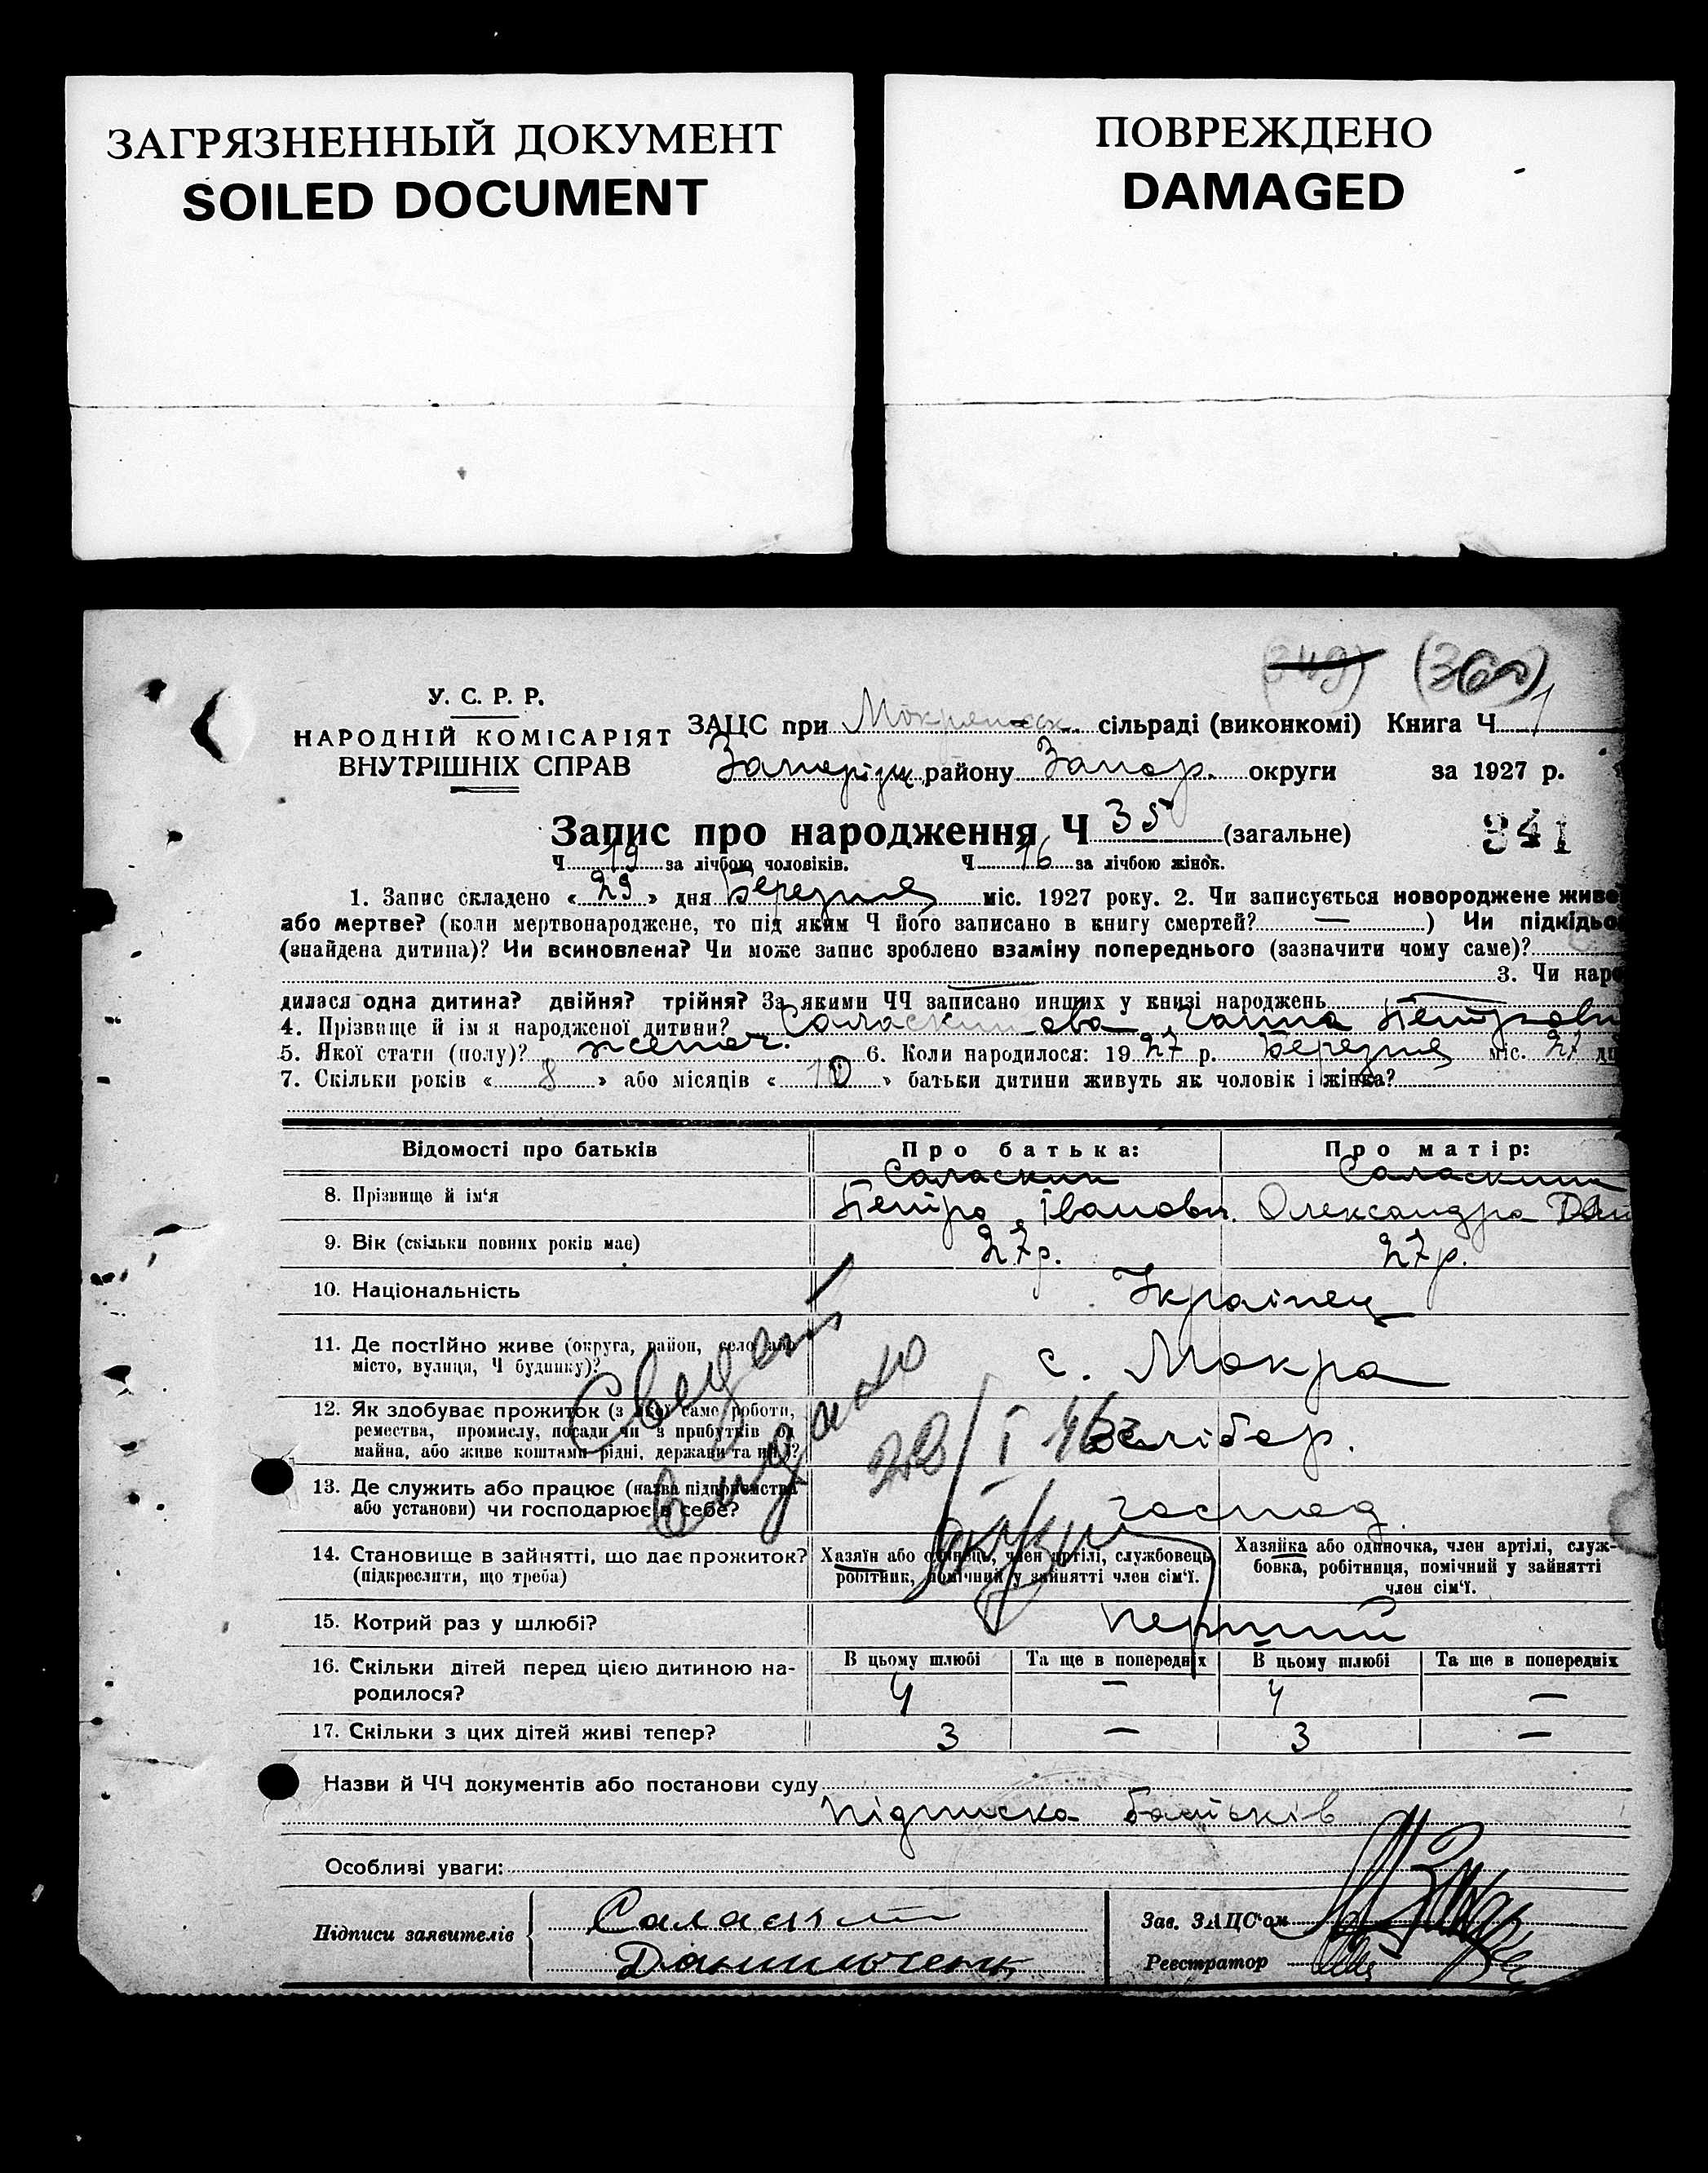 ЗАГРЯЗНЕННЫЙ ДОКУМЕНТ
SOILED DOCUMENT
ПОВРЕЖДЕНО
DAMAGED
(349) (360)
У. С. Р. Р.
НАРОДНІЙ КОМІСАРІЯТ
ВНУТРІШНІХ СПРАВ
ЗАЦС при сільраді (виконкомі) Книга Ч 1
Запоріжж. району Запор. округи за 1927 р.
Запис про народження Ч 35 (загальне)
341
Ч 19 за лічбою чоловіків. Ч 16 за лічбою жінок.
1. Запис складено « 29 » дня Березня міс. 1927 року. 2. Чи записується новороджене живе
або мертве? (коли мертвонароджене, то під яким Ч його записано в книгу смертей? — ) Чи підкідьо
(знайдена дитина)? Чи всиновлена? Чи може запис зроблено взаміну попереднього (зазначити чому саме)?
3. Чи наро
дилася одна дитина? двійня? трійня? За якими ЧЧ записано инших у книзі народжень
4. Прізвище й ім я народженої дитини? Саласкинова Ганна Петровн
5. Якої статі (полу)? жіноч. 6. Коли народилося: 1927 р. Березня міс. 27 дн
7. Скільки років « 8 » або місяців « 10 » батьки дитини живуть як чоловік і жінка?
Відомості про батьків
Про батька:
Про матір:
8. Прізвище й ім'я
Саласкин
Петро Іванови.
Саласкина
Олександра Дан
9. Вік (скільки повних років має)
27р.
27р.
10. Національність
Українец
11. Де постійно живе (округа, район, село або
місто, вулиця, Ч будинку)?
с. Мокра
12. Як здобуває прожиток (з якої саме роботи,
ремества, промислу, посади чи з прибутків од
майна, або живе коштами рідні, держави та ин.)?
хлібор.
13. Де служить або працює (назва підприємства
або установи) чи господарює в себе?
господ.
Свидет
видано
28/I 46
14. Становище в зайнятті, що дає прожиток?
(підкреслити, що треба)
Хазяїн або одинець, член артілі, службовець,
робітник, помічний у зайнятті член сім'ї.
Хазяйка або одиночка, член артілі, служ-
бовка, робітниця, помічний у зайнятті
член сім'ї.
15. Котрий раз у шлюбі?
перший
16. Скільки дітей перед цією дитиною на-
родилося?
В цьому шлюбі Та ще в попередніх В цьому шлюбі Та ще в попередніх
4 — 4 —
17. Скільки з цих дітей живі тепер?
3 — 3 —
Назви й ЧЧ документів або постанови суду
підписка батьків
Особливі уваги:
Підписи заявителів
Саласкин
Данильченк
Зав. ЗАЦС'ом
Реєстратор